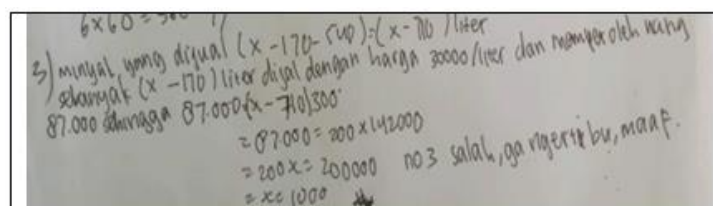 6x60=360
3) minyak yang dijual (x-170-540)=(x-710) liter
sebanyak (x-170) liter dijal dengan harga 30000/liter dan memperoleh uang
87.000 sehingga 87.000(x-710)300
=87.000=200x142000
=200x=200000 no 3 salah, ga ngerti bu, maaf.
=x=1000